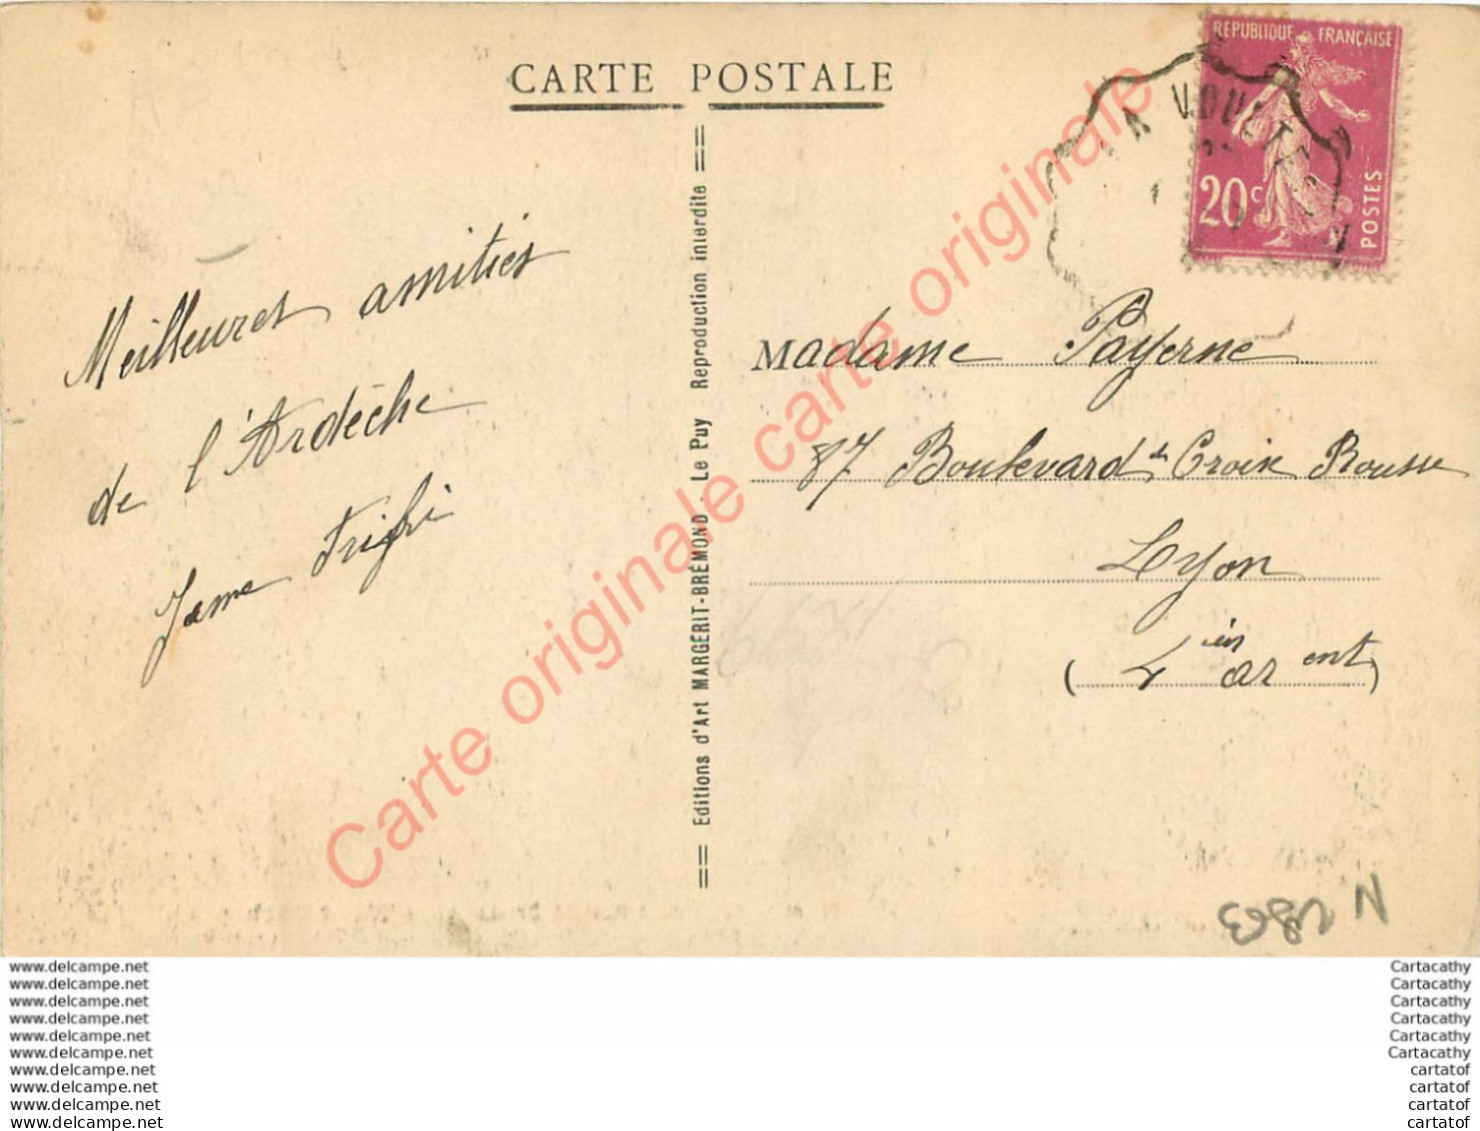 CARTE POSTALE
REPUBLIQUE FRANÇAISE
20c
POSTES
VOULTE
Meilleures amitiés
de l'Ardèche
Jame
== Editions d'Art MARGERIT-BRÉMOND - Le Puy Reproduction interdite ==
Madame Payerne
87 Boulevard de Croix Rousse
Lyon
(4 ar ent)
Carte originale carte originale carte originale
www.delcampe.net
www.delcampe.net
www.delcampe.net
www.delcampe.net
www.delcampe.net
www.delcampe.net
www.delcampe.net
www.delcampe.net
www.delcampe.net
www.delcampe.net
Cartacathy
Cartacathy
Cartacathy
Cartacathy
Cartacathy
Cartacathy
cartatof
cartatof
cartatof
cartatof